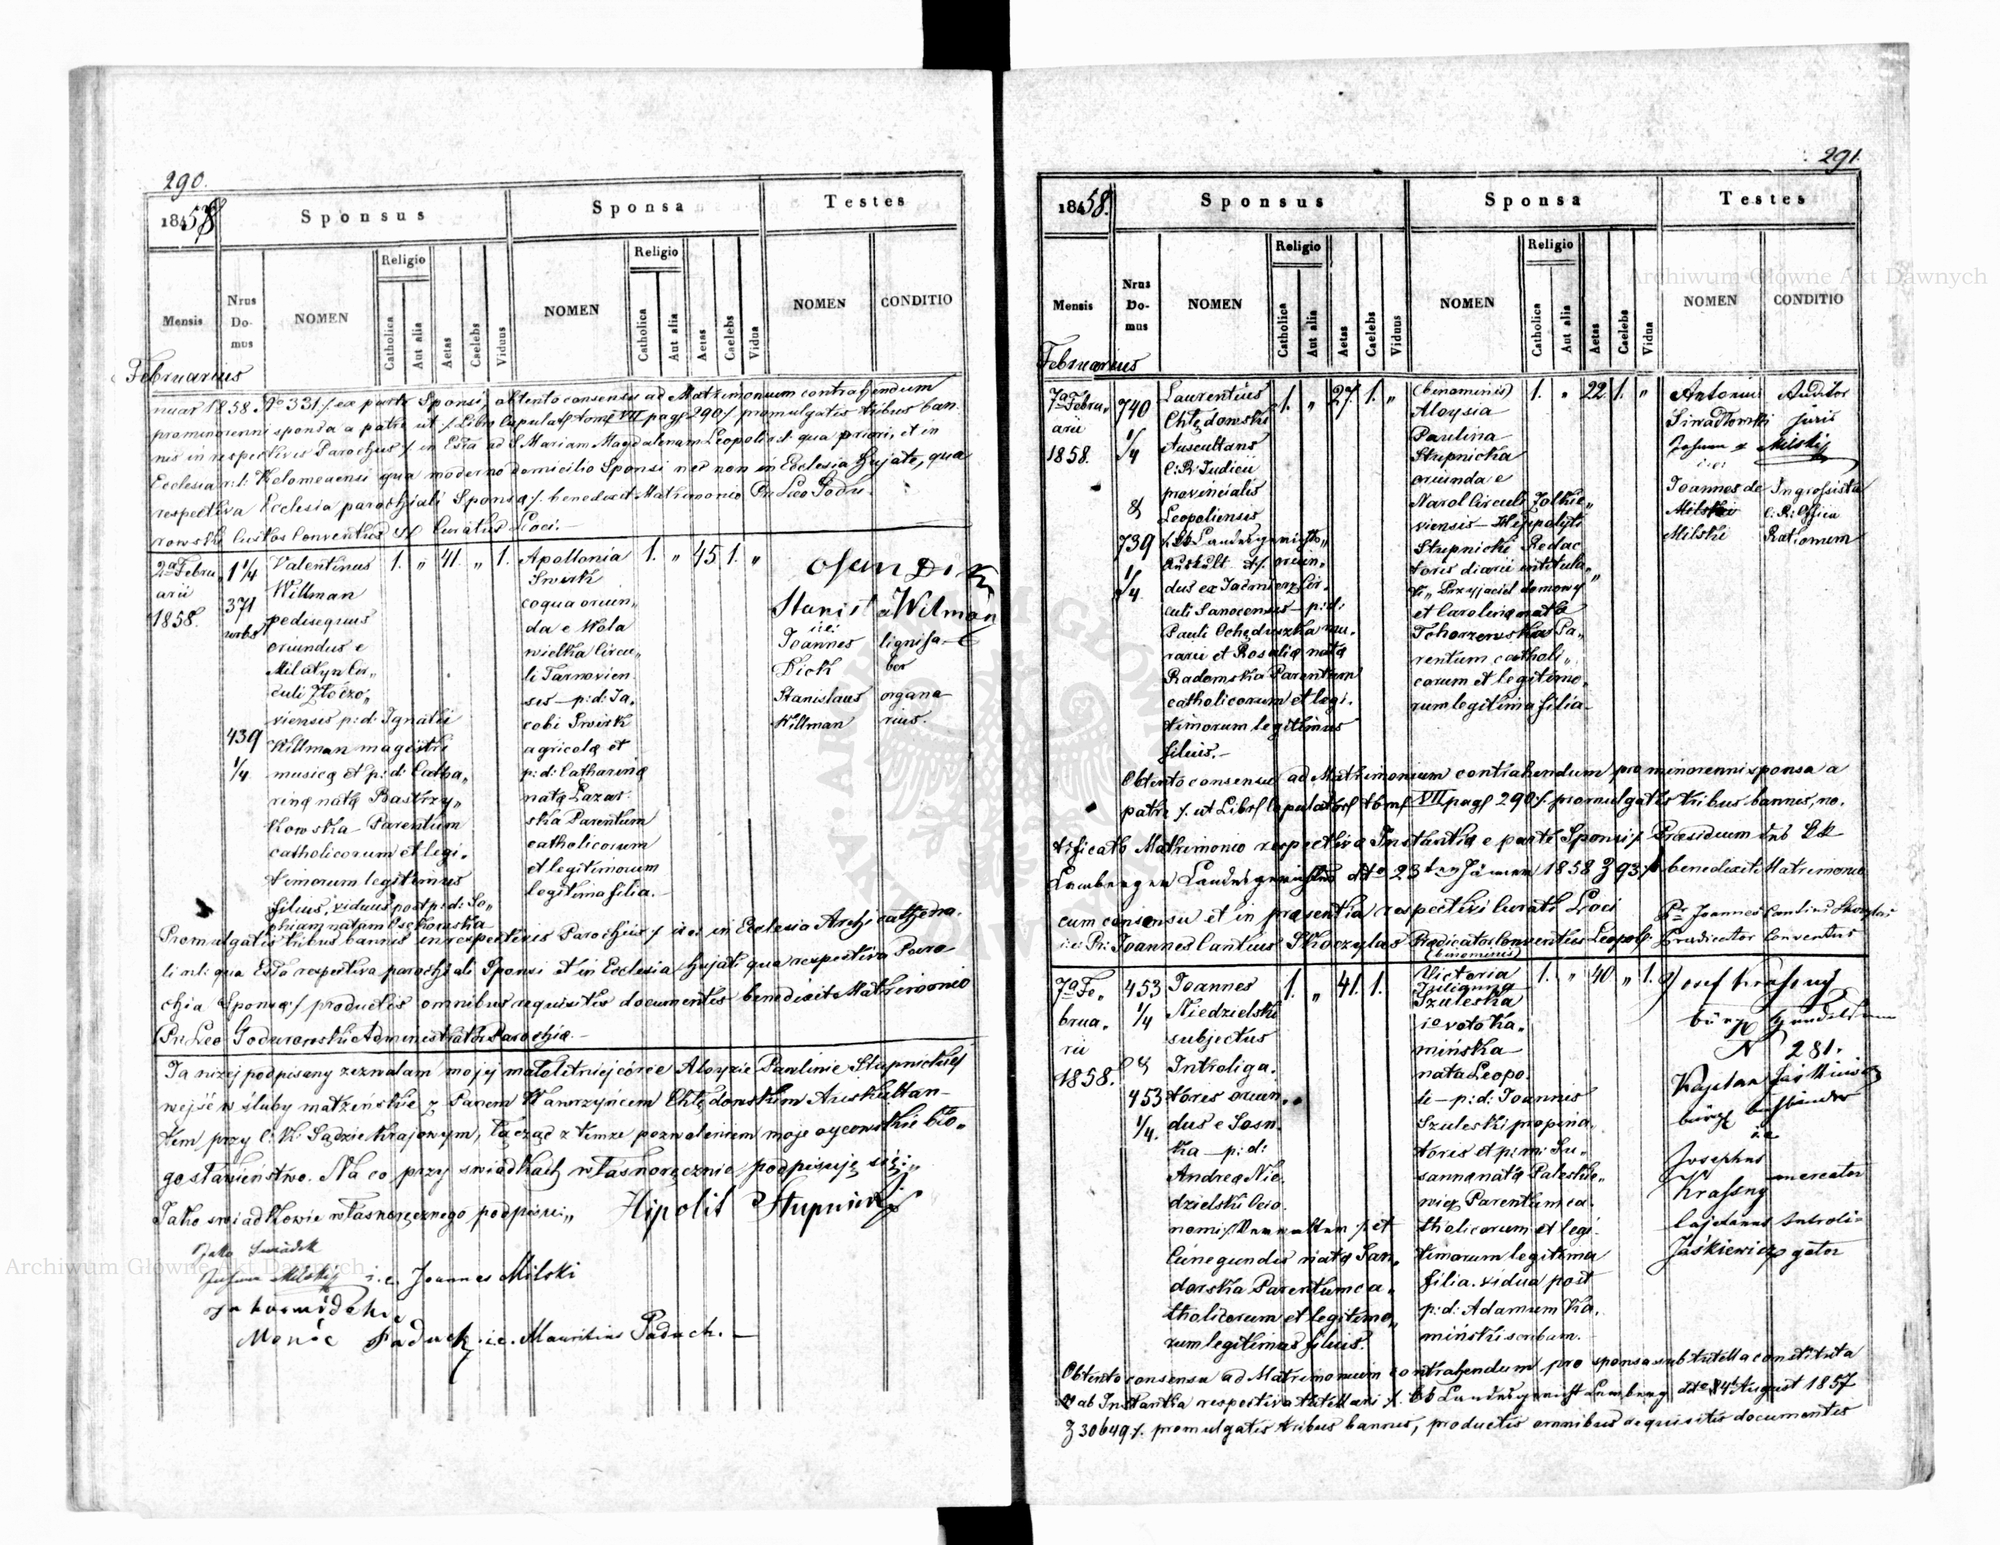 290.
1858
Sponsus
Sponsa
Testes
Mensis
Nrus Domus
NOMEN
Religio
Catholica
Aut alia
Aetas
Caelebs
Viduus
NOMEN
Religio
Catholica
Aut alia
Aetas
Caelebs
Vidua
NOMEN
CONDITIO
Februarius
nuar 1858. No 331 /. ex parte Sponsi, obtento consensu ad Matrimonium contrahendum
pro minorenni sponsa a patre ut /. Libro Copulat. tom. VII pag. 290 /. promulgatis tribus ban
nis in respectivis Parochiis /. in Ecclā ad S. Mariam Magdalenam Leopoli r. l. qua priori, et in
Ecclesia r: l: qua moderno domicilio Sponsi nec non in Ecclesia hujate, qua
respectiva Ecclesia parochiali Sponsa /. benedixit Matrimonio Pr. Leo Godu
rowski Custos Conventus Curatus Loci.
2a Febru
arii
1858.
1 1/4
371
urbs
439
1/4
Valentinus
Willman
pedisequus
oriundus e
Milatyn Cir
culi Złoczo„
viensis p: d: Ignatii
Willman magistri
musicę et p: d: Catha„
rinę natę Bastrzy„
kowska Parentum
catholicorum et legi.
timorum legitimus
filius, viduus post p: d: So„
phiam natam
1. „ 41 „ 1.
Apollonia
Swirk
coqua oriun„
da e Wola
wielka Circu„
li Tarnovien
sis – p: d: Ja.
cobi Swirk
agricolę et
p: d: Catharinę
natę Lazar
ska Parentum
catholicorum
et legitimorum
legitima filia.
1. „ 45 1. „
Stanist Wilman
i.e:
Joannes
Dick
Stanislaus
Willman
lignisa
ber
organa
rius.
Promulgatis tribus bannis in respectivis Parochiis /. i: e: in Ecclesia Archicathedra.
li r: l: qua Ecclā respectiva parochiali Sponsi et in Ecclesia hujati qua respectiva Paro
chia Sponsę /. productis omnibus requisitis documentis benedixit Matrimonio
Pr. Leo Godurowski Administrator Parochię.
Ja niżej podpisany zezwalam mojej małoletniej córce Aloyzie Paulinie Stupnickiej
wejść w śluby małżeńskie z Panem Wawrzyńcem Chłędowskim Auskultan–
tem przy C: K: Sądzie Krajowym, łącząc z temże pozwoleniem moje oycowskie bło„
gosławieństwo. Na co przy swiadkach własnoręcznie podpisuję się:„
Jako swiadkowie własnoręcznego podpisu:„ Hipolit Stupnicki
Jako Swiadek
Johann Milski i.e. Joannes Milski
jako swiadek
Moric Paduch i.e. Mauritius Paduch. –
291.
1858.
Sponsus
Sponsa
Testes
Mensis
Nrus Domus
NOMEN
Religio
Catholica
Aut alia
Aetas
Caelebs
Viduus
NOMEN
Religio
Catholica
Aut alia
Aetas
Caelebs
Vidua
NOMEN
CONDITIO
Februarius
7a Febru„
arii
1858.
740
1/4
&
739
1/4
Laurentius
Chłędowski
Auscultans
C: R: Judicii
provincialis
Leopoliensis
/. kk Landesgerichts„
Auskult. /. oriun„
dus ex Jacmierz Cir„
culi Sanocensis – p: d:
Pauli Ochęduszka mu.
rarii et Rosalię natę
Radomska Parentum
catholicorum et legi.
timorum legitimus
filius. –
1. „ 27. 1. „
(binominis)
Aloysia
Paulina
Stupnicka
oriunda e
Narol Circuli Zolkie„
viensis – Hippolyti
Stupnicki Redac
toris diarii intitula„
ti „ Przyjaciel domowy
et Carolinę natę
Tchorzewska Pa„
rentum catholi„
corum et legitimo.
rum legitima filia.
1. „ 22. 1. „
Antonius
Johann
i: e:
Joannes de
Milski
Auditor
juris
Milski
Ingrossista
C: R: Officii
Rationum
Obtento consensu ad Matrimonium contrahendum pro minorenni sponsa a
patre /. ut Libr. Copulator. tom. VII pag. 290 /. promulgatis tribus bannis, no.
tificato Matrimonio respectiva Instantia e parte Sponsi /. Praesidium des kk
Lemberger Landesgerichtes dto 23ten Jänner 1858 Z 93 /. benedixit Matrimonio
cum consensu et in praesentia respectivi Curati Loci
Pr: Joannes Cantius Praedicator Conventus
i: e: Pr: Joannes Cantius Praedicator Conventus Leopol:
7a Fe„
brua„
rii
1858.
453
1/4
&
453
1/4.
Joannes
Niedzielski
subjectus
Introliga.
toris oriun„
dus e Sosn.
ka – p: d:
Andreę Nie.
dzielski
et
Cunegundis natę San„
dorska Parentum ca„
tholicorum et legitimo„
rum legitimus filius.
1. „ 41. 1.
(binominis)
Victoria
Juliana
Szuleska
io voto Ka.
mińska
nata Leopo.
li – p: d: Joannis
Szuleski propina.
toris et p: m: Su„
sannę natę
Parentum ca.
tholicorum et legi.
timorum legitima
filia. vidua post
p: d: Adamum Ka.
miński scribam.
1. „ 40 „ 1.
Josef Krassny
N 281.
Kajetan Jaśkiewicz
bürgl
i.e.
Josephus
Krassny
Cajetanus
Jaśkiewicz
mercator
Introli–
gator
Obtento consensu ad Matrimonium contrahendum pro sponsa sub tutella constituta
ab Instantia respectiva tutellari /. kk Landesgericht Lemberg ddto 14 August 1857
Z 30649 /. promulgatis tribus bannis, productis omnibus requisitis documentis
Archiwum Główne Akt Dawnych
Archiwum Główne Akt Dawnych